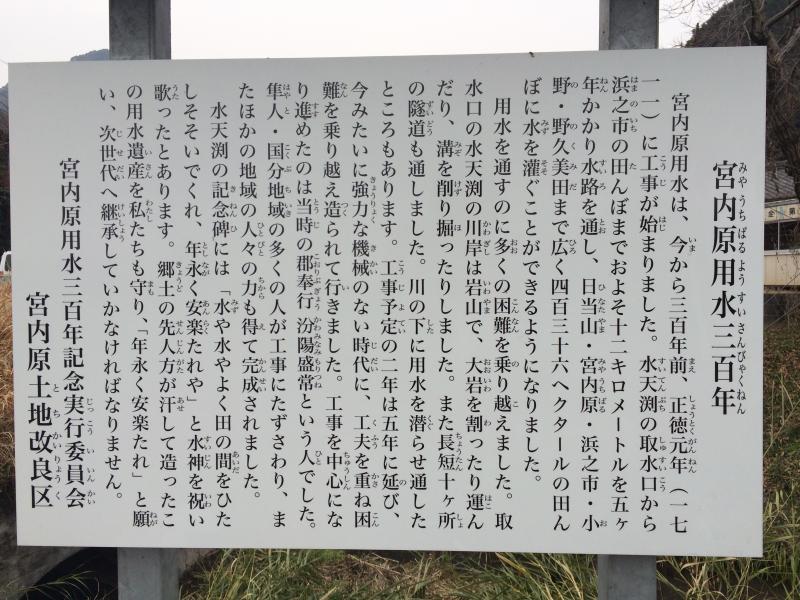 宮内原用水三百年
宮内原用水は、今から三百年前、正徳元年(一七
一一)に工事が始まりました。水天渕の取水口から
浜之市の田んぼまでおよそ十二キロメートルを五ヶ
年かかり水路を通し、日当山・宮内原・浜之市・小
野・野久美田まで広く四百三十六ヘクタールの田ん
ぼに水を灌ぐことができるようになりました。
用水を通すのに多くの困難を乗り越えました。取
水口の水天渕の川岸は岩山で、大岩を割ったり運ん
だり、溝を削り掘ったりしました。また長短十ヶ所
の隧道も通しました。川の下に用水を潜らせ通した
ところもあります。工事予定の二年は五年に延び、
今みたいに強力な機械のない時代に、工夫を重ね困
難を乗り越え造られて行きました。工事を中心にな
り進めたのは当時の郡奉行 汾陽盛常という人でした。
隼人・国分地域の多くの人が工事にたずさわり、ま
たほかの地域の人々の力も得て完成されました。
水天渕の記念碑には「水や水やよく田の間をひた
しそそいでくれ、年永く安楽たれや」と水神を祝い
歌ったとあります。郷土の先人方が汗して造ったこ
の用水遺産を私たちも守り、「年永く安楽たれ」と願
い、次世代へ継承していかなければなりません。
宮内原用水三百年記念実行委員会
宮内原土地改良区